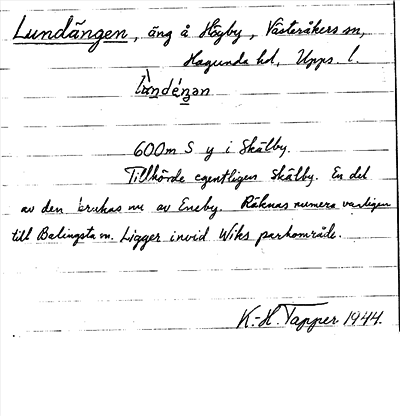 Lundängen, äng å Högby, Västeråkers sn,
Hagunda hd, Upps. l.
600m S y i Skälby.
Tillhörde egentligen Skälby. En del
av den brukas nu av Eneby. Räknas numera vanligen
till Balingsta sn. Ligger invid Wiks parkområde.
K.-H. Tapper 1944.